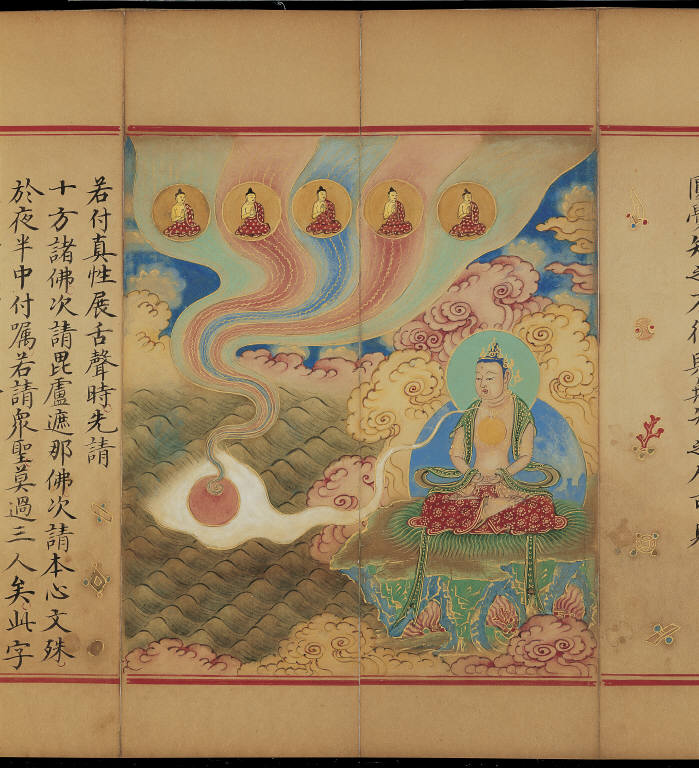 若付真性展舌聲時先請
十方諸佛次請毘盧遮那佛次請本心文殊
於夜半中付嘱若請衆聖莫過三人矣此字